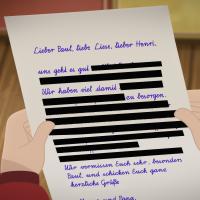 Lieber Paul, liebe Liese, lieber Henri,
uns geht es gut
Wir haben viel damit
en besorgen.
Wir vermissen Euch sehr, besonders
Paul, und schicken Euch ganz
herzliche Grüße
und Papa.